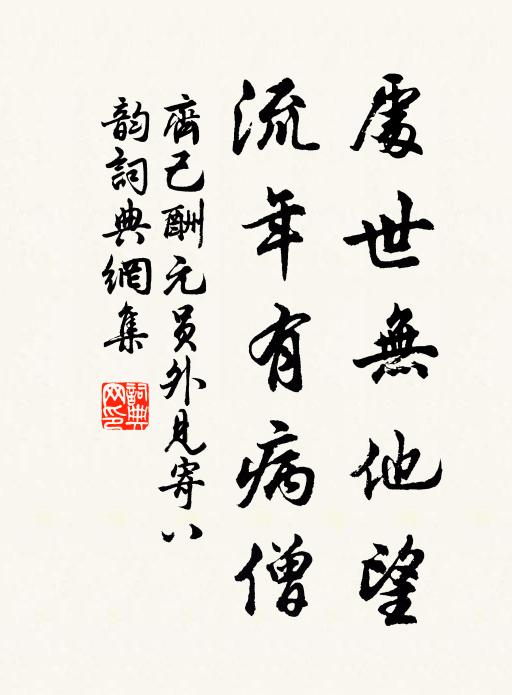 處世無他望
流年有病僧
齊己酬元员外見寄八
韵詞典網集
詞典
网印